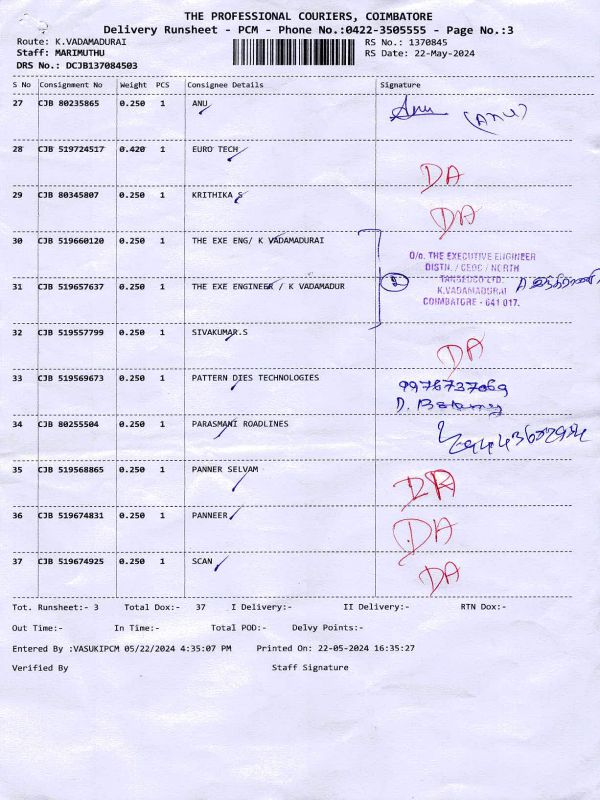 THE PROFESSIONAL COURIERS, COIMBATORE
Delivery Runsheet - PCM - Phone No.:0422-3505555 - Page No.:3
Route: K.VADAMADURAI RS No.: 1370845
Staff: MARIMUTHU RS Date: 22-May-2024
DRS No.: DCJB137084503
S No Consignment No Weight PCS Consignee Details Signature
27 CJB 80235865 0.250 1 ANU Anu (ANU)
28 CJB 519724517 0.420 1 EURO TECH DA
29 CJB 80345807 0.250 1 KRITHIKA S DA
30 CJB 519660120 0.250 1 THE EXE ENG/ K VADAMADURAI
O/o. THE EXECUTIVE ENGINEER
DISTN. / CEDC / NORTH
31 CJB 519657637 0.250 1 THE EXE ENGINEER / K VADAMADUR 2 TANGEDCO LTD.
K.VADAMADURAI
COIMBATORE - 641 017.
32 CJB 519557799 0.250 1 SIVAKUMAR.S DA
33 CJB 519569673 0.250 1 PATTERN DIES TECHNOLOGIES 9976737069
34 CJB 80255504 0.250 1 PARASMANI ROADLINES
35 CJB 519568865 0.250 1 PANNER SELVAM DA
36 CJB 519674831 0.250 1 PANNEER DA
37 CJB 519674925 0.250 1 SCAN DA
Tot. Runsheet:- 3 Total Dox:- 37 I Delivery:- II Delivery:- RTN Dox:-
Out Time:- In Time:- Total POD:- Delvy Points:-
Entered By :VASUKIPCM 05/22/2024 4:35:07 PM Printed On: 22-05-2024 16:35:27
Verified By Staff Signature